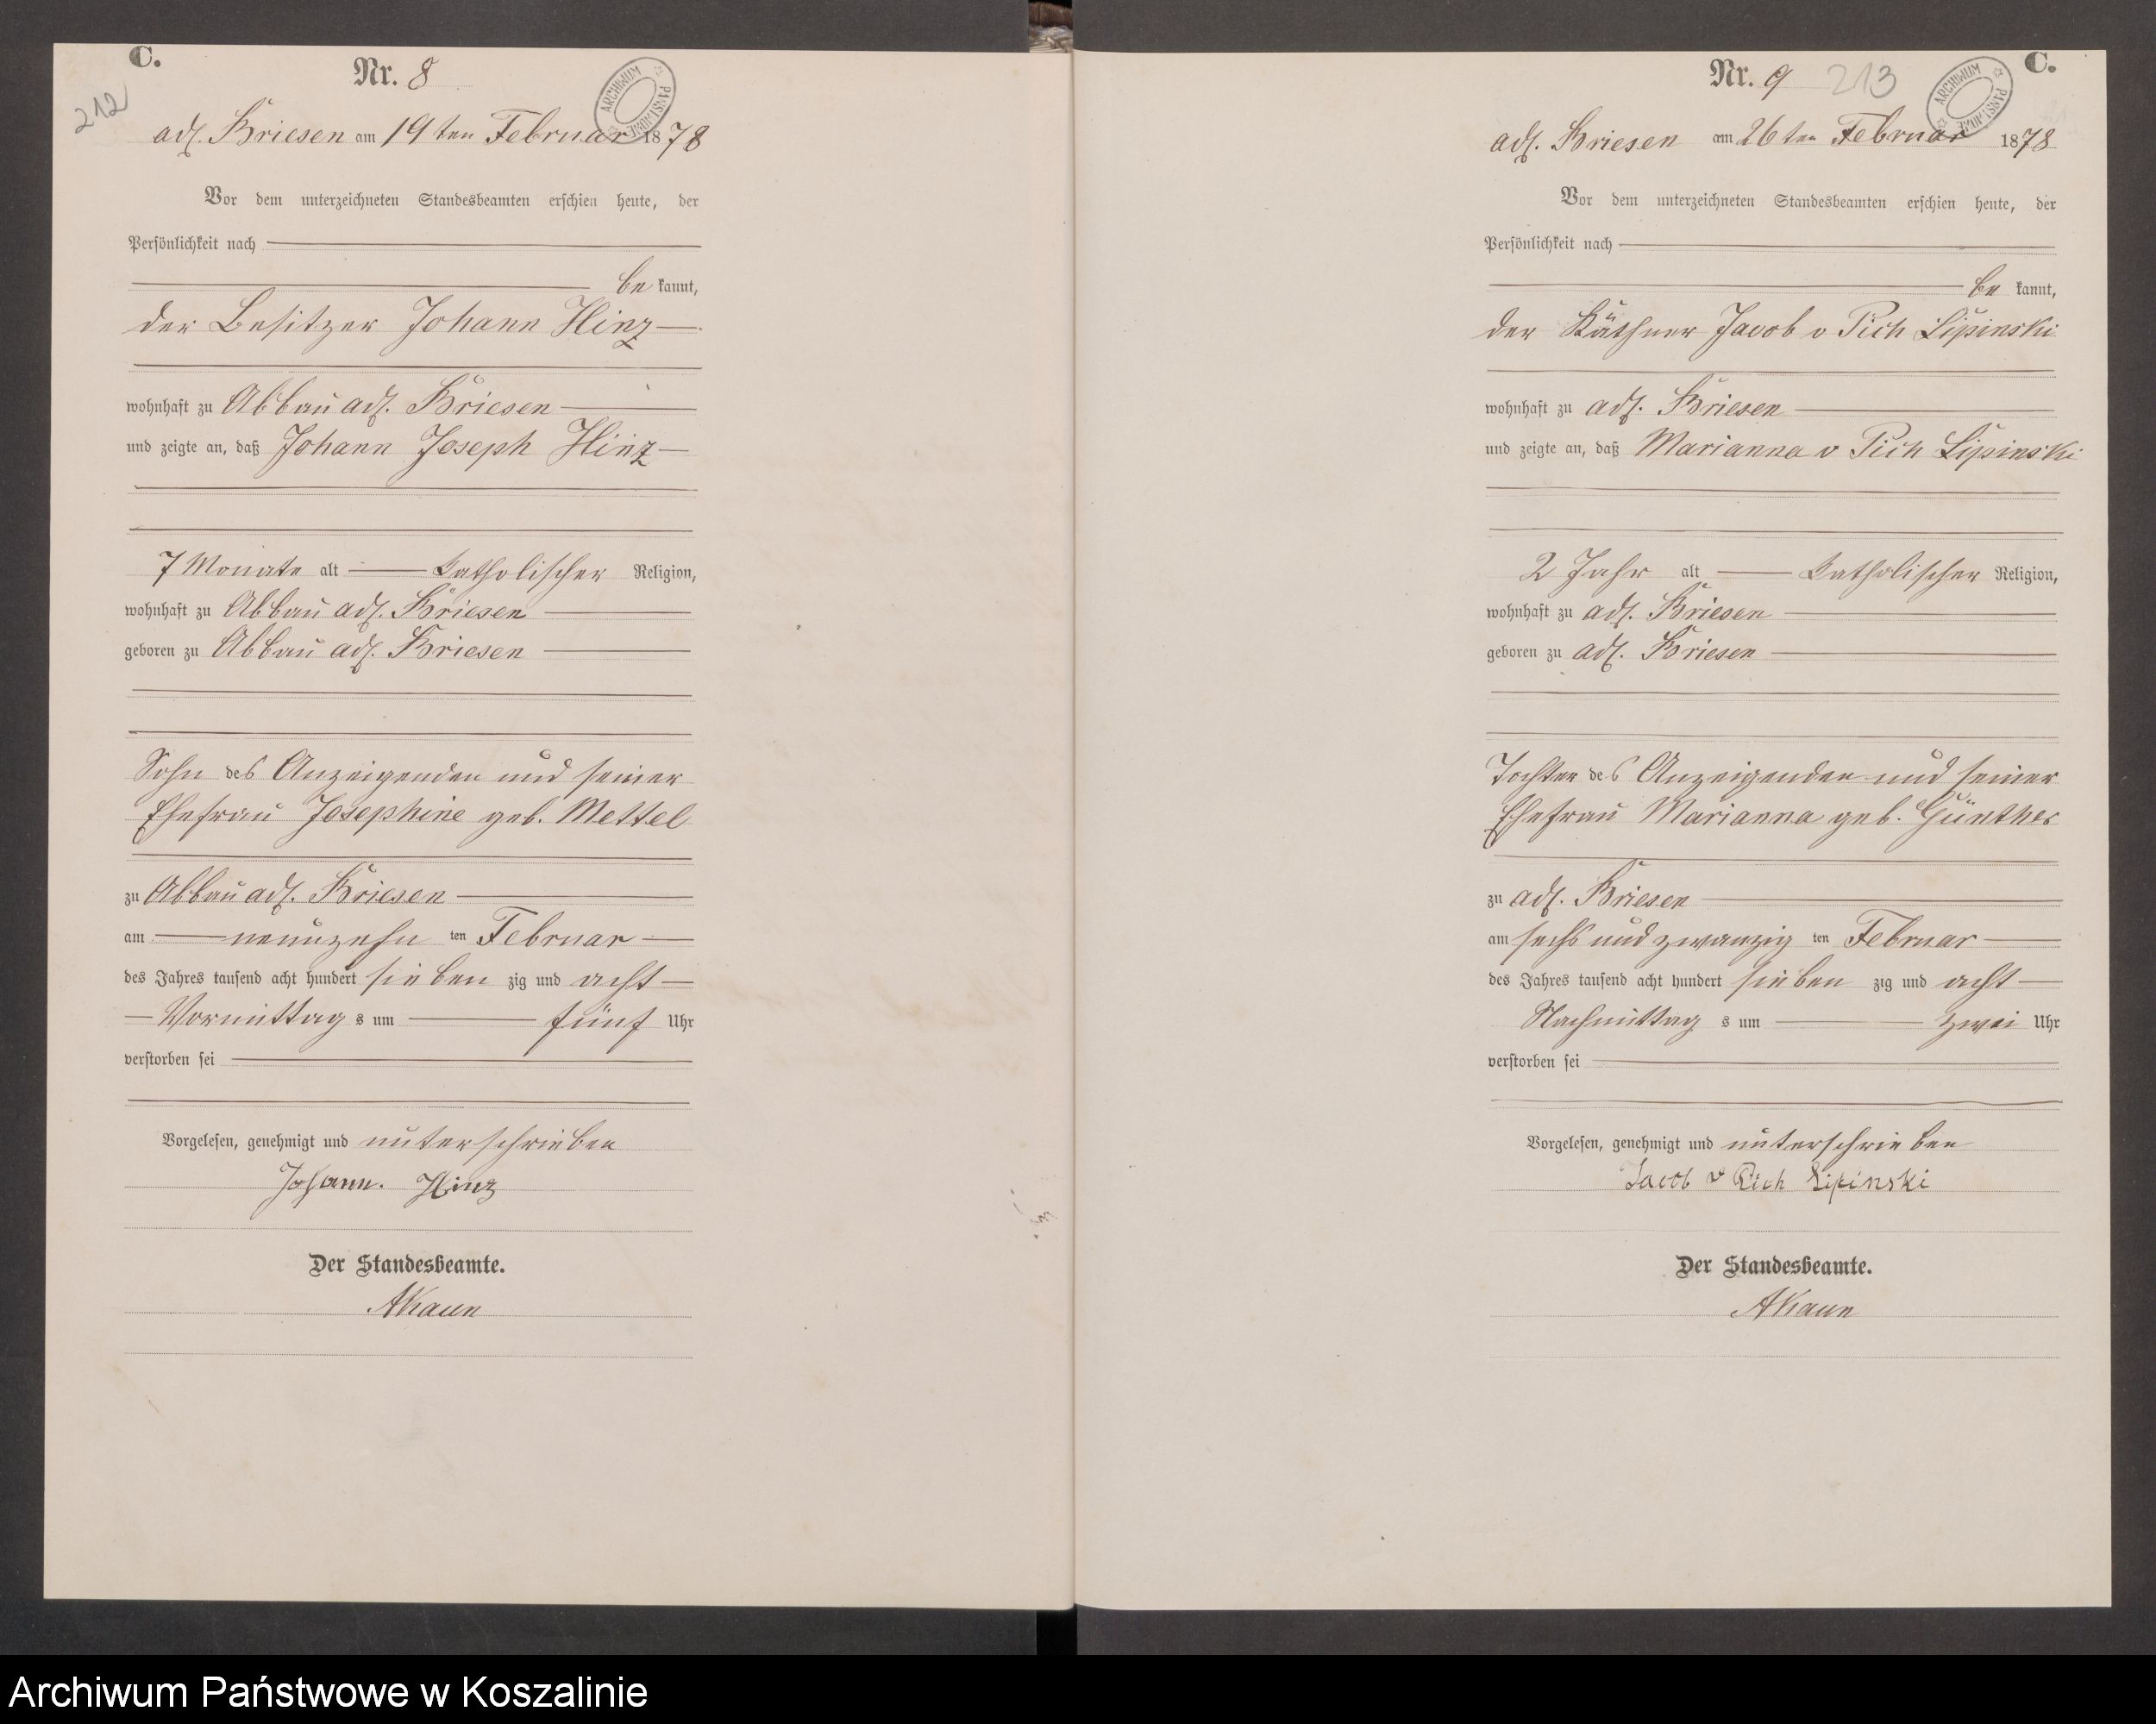 C.
Nr. 8
212
ARCHIWUM PAŃSTWOWE
adl. Briesen am 19ten Februar 1878
Vor dem unterzeichneten Standesbeamten erschien heute, der
Persönlichkeit nach
be kannt,
der Besitzer Johann Hinz
wohnhaft zu Abbau adl. Briesen
und zeigte an, daß Johann Joseph Hinz
7 Monate alt katholischer Religion,
wohnhaft zu Abbau adl. Briesen
geboren zu Abbau adl. Briesen
Sohn des Anzeigenden und seiner
Ehefrau Josephine geb. Mettel
zu Abbau adl. Briesen
am neunzehn ten Februar
des Jahres tausend acht hundert sieben zig und acht
Vormittag s um fünf Uhr
verstorben sei
Vorgelesen, genehmigt und unterschrieben
Johann. Hinz
Der Standesbeamte.
AKaun
C.
Nr. 9 213
ARCHIWUM PAŃSTWOWE
adl. Briesen am 26ten Februar 1878
Vor dem unterzeichneten Standesbeamten erschien heute, der
Persönlichkeit nach
be kannt,
der Käthner Jacob v Pich Lipinski
wohnhaft zu adl. Briesen
und zeigte an, daß Marianna v Pich Lipinski
2 Jahr alt katholischer Religion,
wohnhaft zu adl. Briesen
geboren zu adl. Briesen
Tochter des Anzeigenden und seiner
Ehefrau Marianna geb. Günther
zu adl. Briesen
am sechs und zwanzig ten Februar
des Jahres tausend acht hundert sieben zig und acht
Nachmittag s um zwei Uhr
verstorben sei
Vorgelesen, genehmigt und unterschrieben
Jacob v Pich Lipinski
Der Standesbeamte.
AKaun
Archiwum Państwowe w Koszalinie